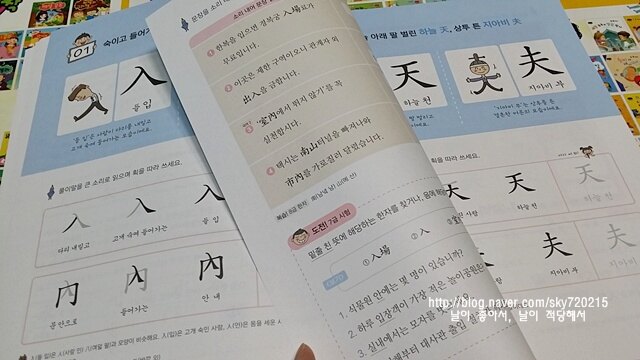 01
숙이고 들어가
入
들 입
'들 입'은 사람이 다리를 내밀고
고개 숙여 들어가는 모습이에요.
풀이말을 큰 소리로 읽으며 획을 따라 쓰세요.
入
다리 내밀고
入
고개 숙여 들어가는
入
들 입
內
문 안으로
內
들어가는
內
안 내
문장을 소리 내
소리 내어 문장
한복을 입으면 경복궁 入場료가
무료입니다.
이곳은 제한 구역이오니 관계자 외
出入을 금합니다.
'室內에서 뛰지 않기'를 꼭
실천합시다.
택시는 南山터널을 빠져나와
市內를 가로질러 달렸습니다.
도전! 7급 시험
밑줄 친 뜻에 해당하는 한자를 찾거나,
①入場
②入
1. 식물원 안에는 몇 명이 있습니까?
2. 하루 입장객이 가장 적은 놀이공원은
3. 실내에서는 모자를
아래 팔 벌린 하늘 天, 상투 튼 지아비 夫
天
하늘 천
夫
지아비 부
'지아비 부'는 상투를 튼
결혼한 어른의 모습이에요.
획을 따라 쓰세요.
天
天
하늘 천
天
夫
夫
지아비 부
http://blog.naver.com/sky720215
날이 좋아서, 날이 적당해서